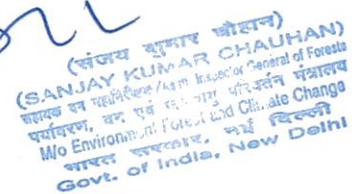 (संजय कुमार चौहान)
(SANJAY KUMAR CHAUHAN)
सहायक वन महानिरीक्षक / Asstt. Inspector General of Forests
पर्यावरण, वन एवं जलवायु परिवर्तन मंत्रालय
M/o Environment Forest and Climate Change
भारत सरकार, नई दिल्ली
Govt. of India, New Delhi